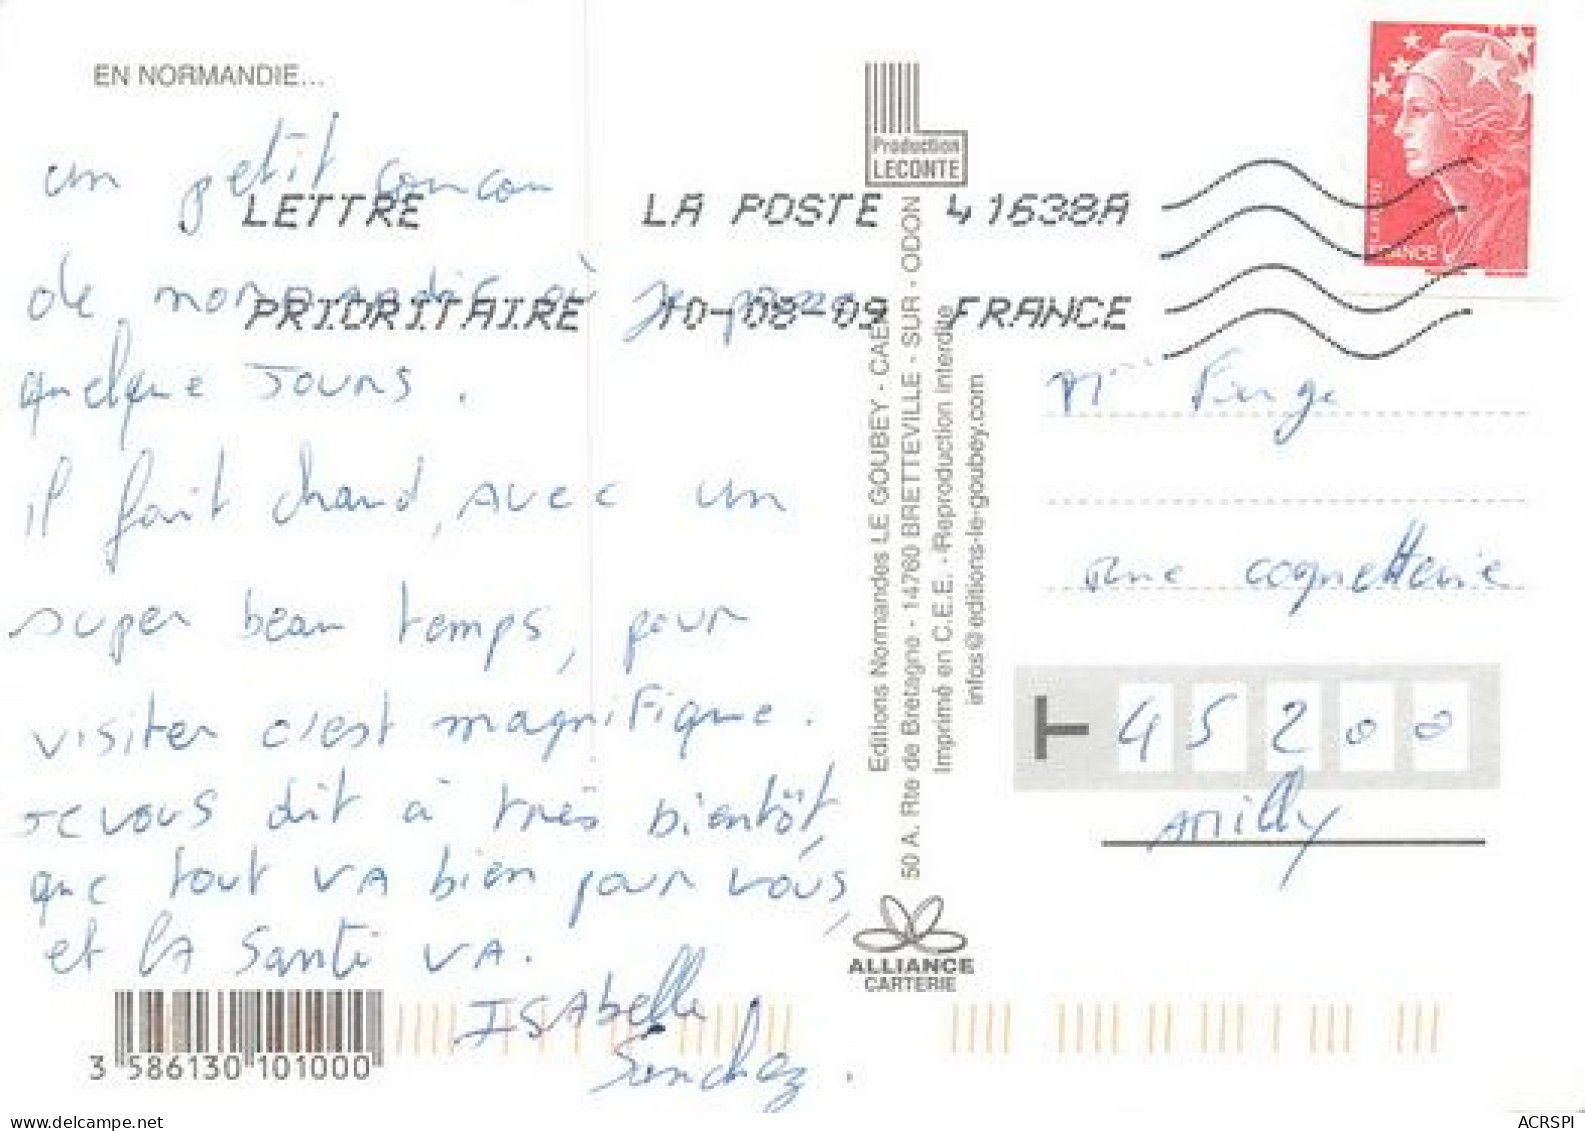 EN NORMANDIE...
un petit coucou
de normandie où je passe
quelque Jours.
il fait chaud, avec un
super beau temps, pour
visiter c'est magnifique.
Je vous dit à très bientôt,
que tout va bien pour vous,
et la Santé va.
Isabelle
Sanchez.
3 586130 101000
Production
LECONTE
LETTRE LA POSTE 41638A
PRIORITAIRE 10-08-09 FRANCE
Editions Normandes LE GOUBEY - CAEN
50 A. Rte de Bretagne - 14760 BRETTEVILLE - SUR - ODON
Imprimé en C.E.E. - Reproduction interdite
infos@editions-le-goubey.com
ALLIANCE
CARTERIE
LA POSTE
FRANCE
Mme
rue coquetterie
45200
Amilly
www.delcampe.net
ACRSPI